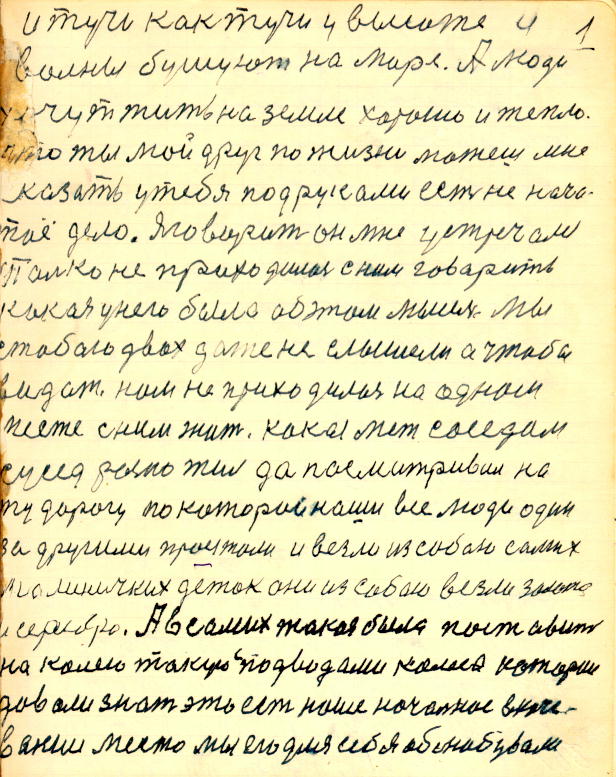 и тучи как тучи у высоте и 1
волны бушуют на море. А люди
хочут жить на земле хорошо и тепло.
что ты мой друг по жизни можеш мне
сказать у тебя под руками ест не нача-
тоё дело. Я говорит он мне устречал
Палко не приходилос с ним говарить
какая у него была об этом мысл. Мы
с тобою двох даже не слышели а чтоба
видат. нам не приходилос на одном
месте с ним жит. как мет соседам
сусед жил да посматривал на
ту дорогу по которой наши все люди один
за другими проежали и везли из собою самих
малиничких деток они из собою везли золото
и серебро. А в самих такая была поставит
на колею такую подводами колеса которые
довали знат это ест наше начолное
место мы его для себя обснобували